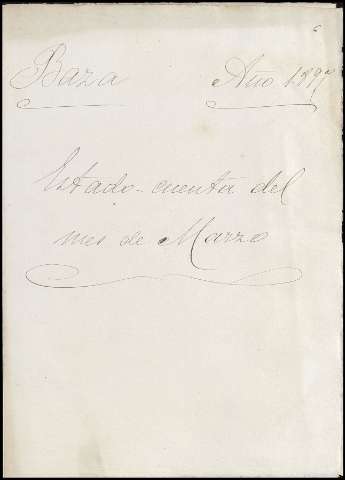 Baza Año 1897
Estado-cuenta del
mes de Marzo